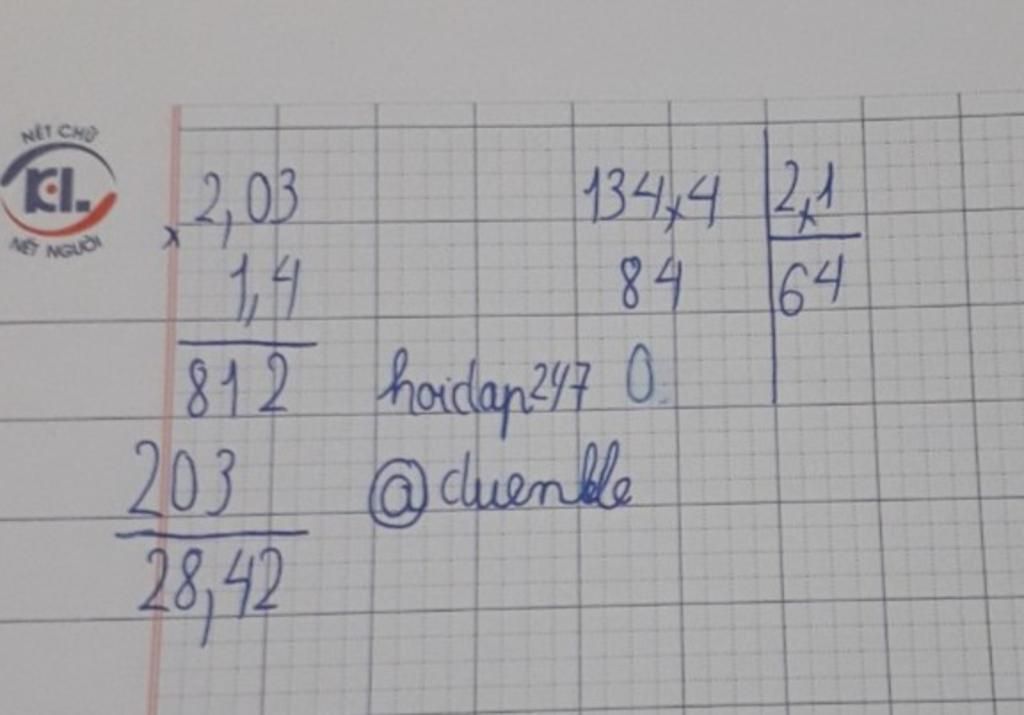 NÉT CHỮ
KL.
NÉT NGƯỜI
2,03
x
1,4
812
203
28,42
134,4 2,1
84 64
0
hoidap247
@duenkle